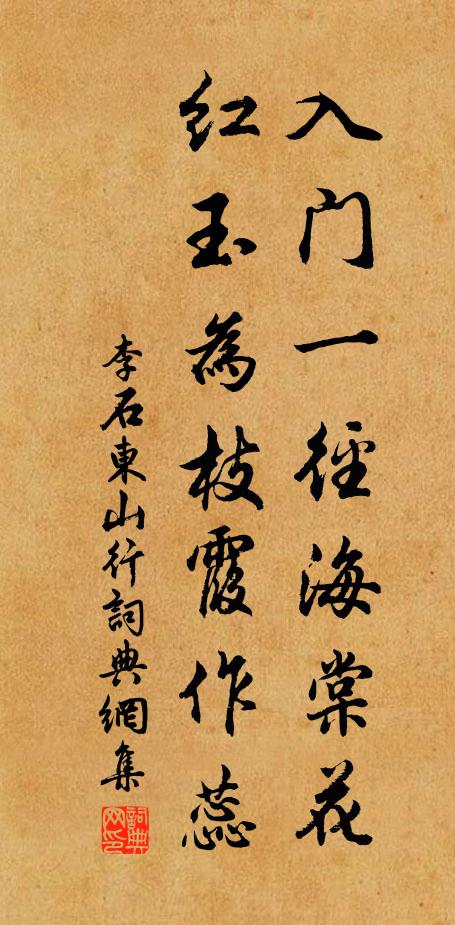 入门一径海棠花
红玉為枝霞作蕊
李石東山行詞典網集
詞典网印